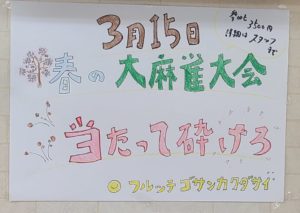 3月15日
参加も 3500円
詳細は スタッフ
まで
春の大麻雀大会
当たって砕けろ
フルッテゴサンカクダサイ